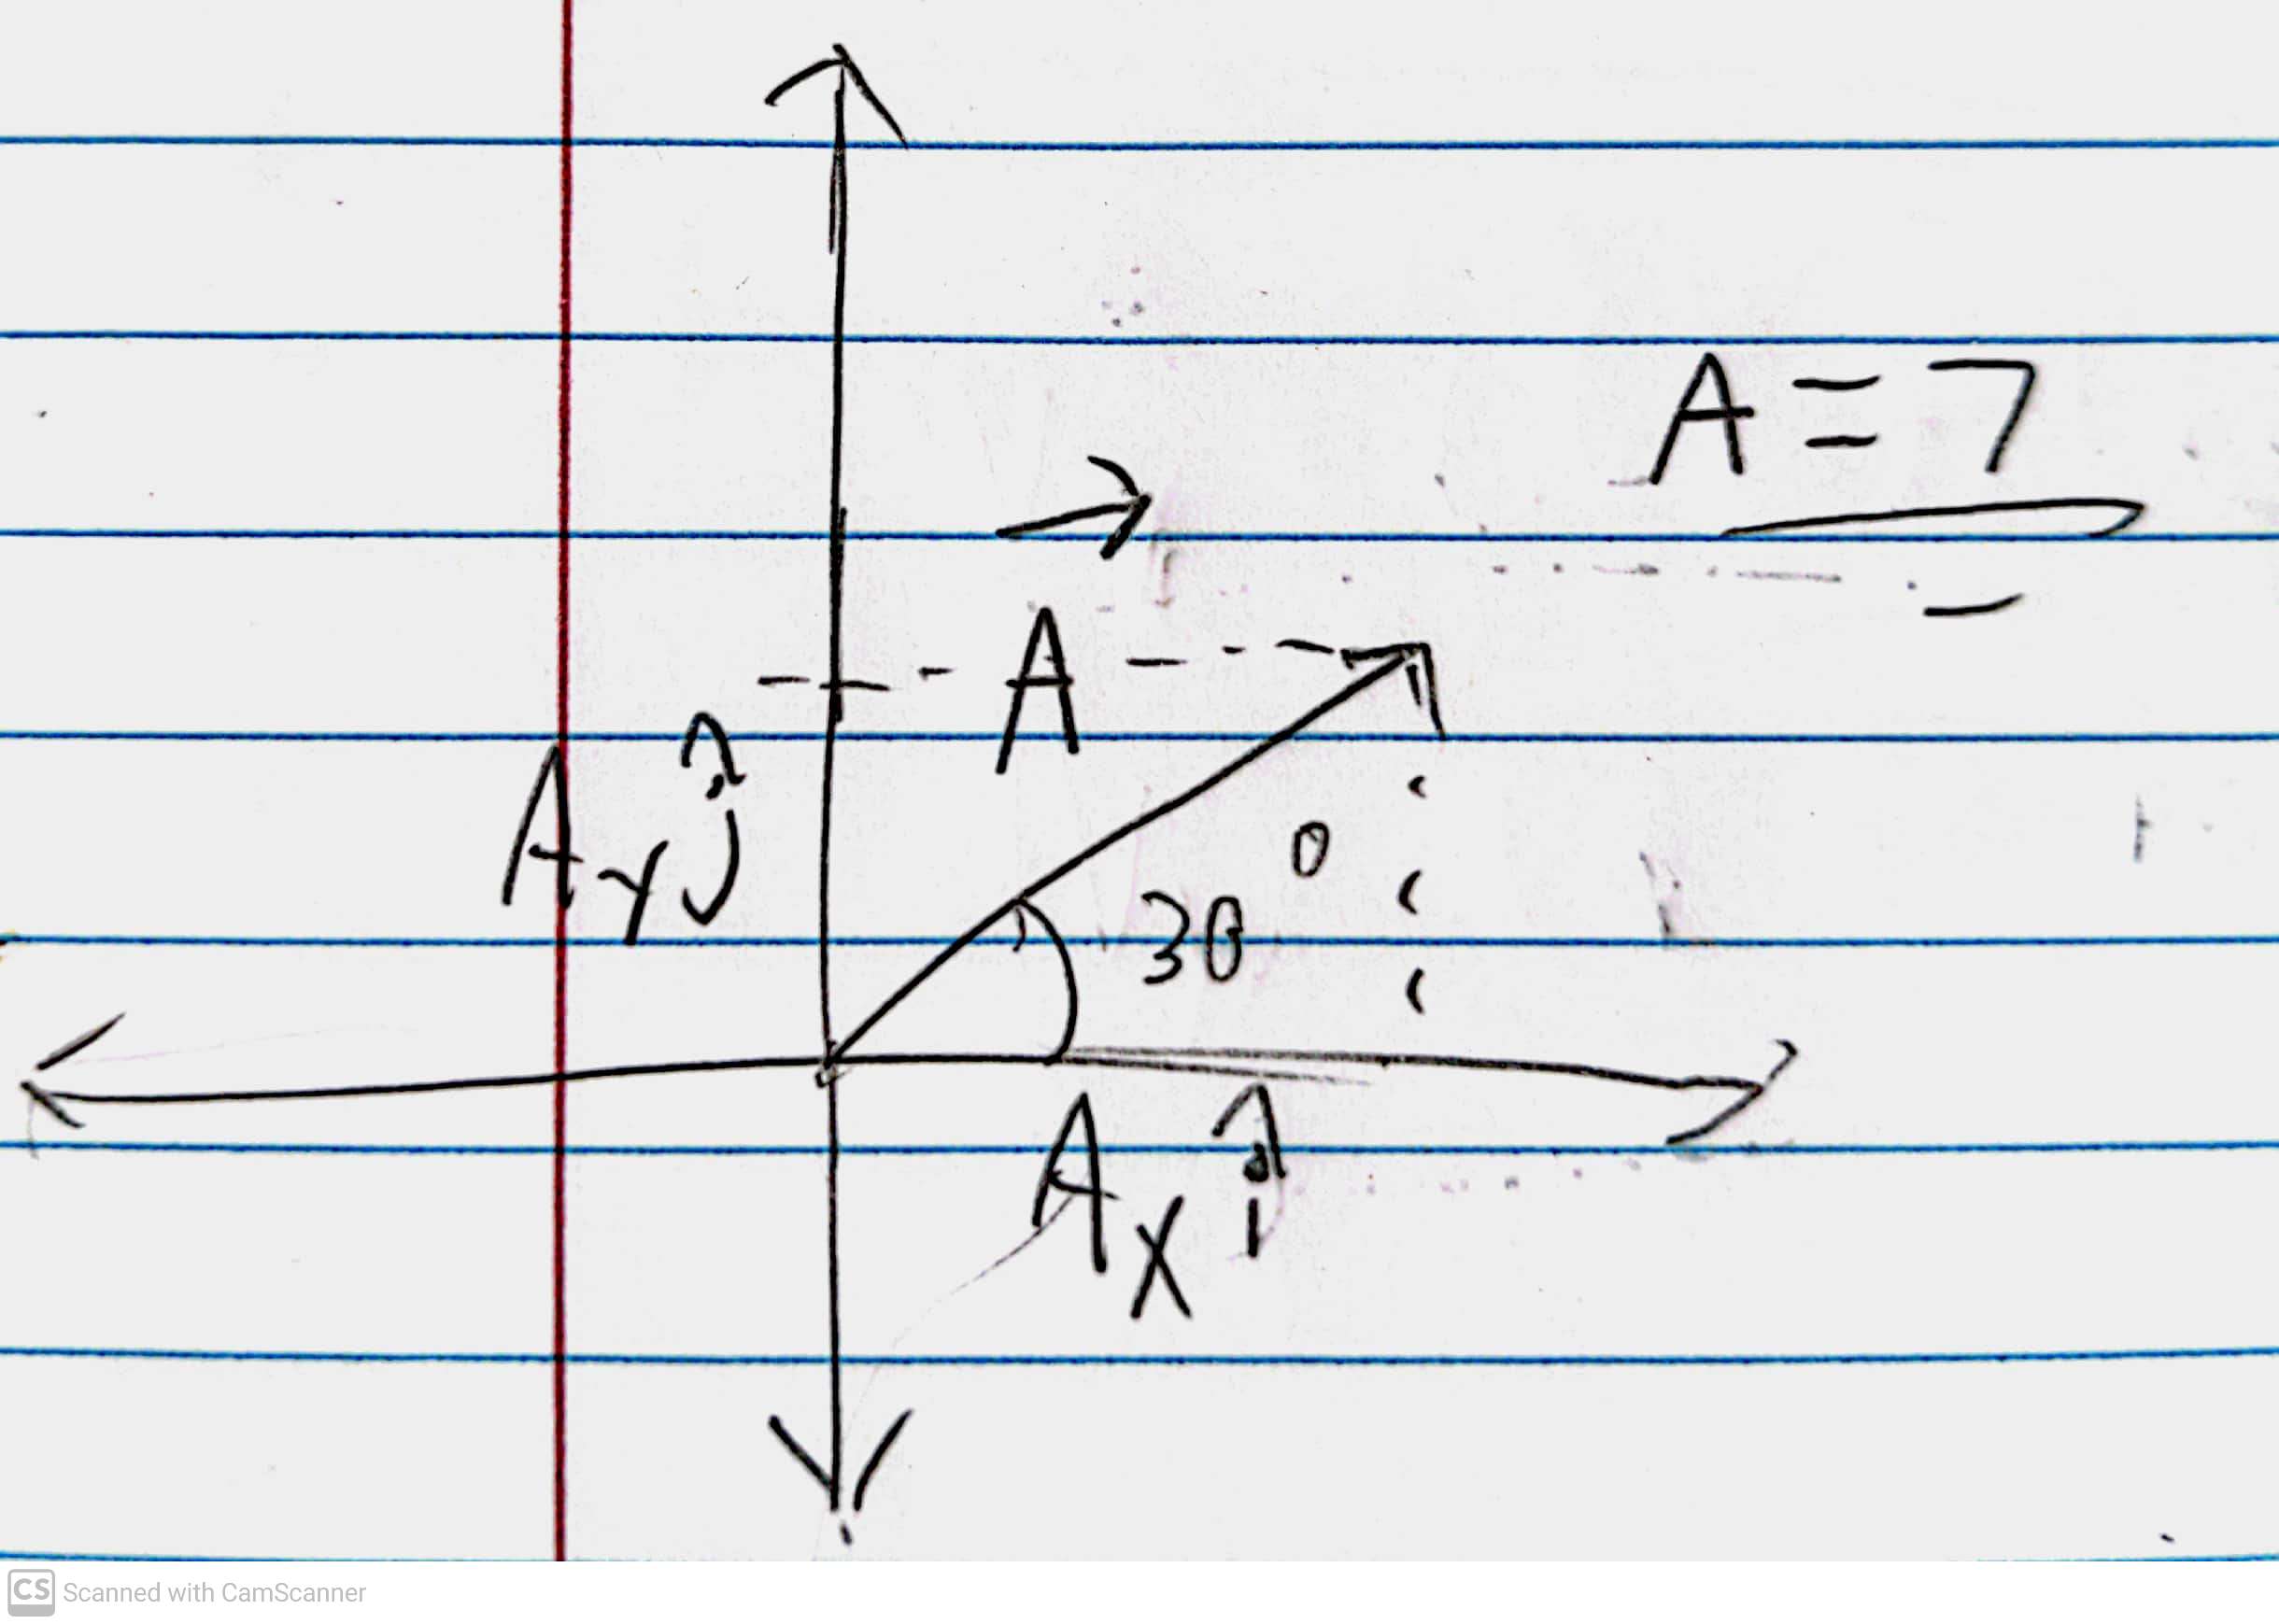 A = 7
→
A
A
y
ĵ
30°
A
x
î
CS Scanned with CamScanner